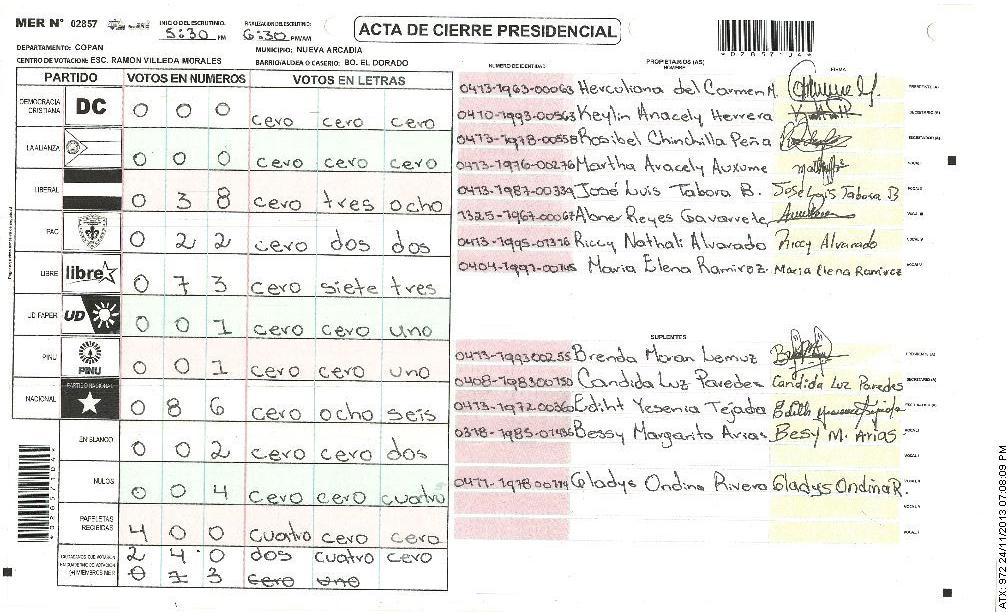 MER N° 02857
INICIO DEL ESCRUTINIO: 5:30 PM
FINALIZACION DEL ESCRUTINIO: 6:30 PM/AM
ACTA DE CIERRE PRESIDENCIAL
*02857104*
DEPARTAMENTO: COPAN
MUNICIPIO: NUEVA ARCADIA
CENTRO DE VOTACION: ESC. RAMON VILLEDA MORALES
BARRIO/ALDEA O CASERIO: BO. EL DORADO
PARTIDO VOTOS EN NUMEROS VOTOS EN LETRAS
DEMOCRACIA CRISTIANA DC 0 0 0 cero cero cero
LA ALIANZA 0 0 0 cero cero cero
LIBERAL 0 3 8 cero tres ocho
PAC 0 2 2 cero dos dos
LIBRE libre 0 7 3 cero siete tres
UD FAPER UD 0 0 1 cero cero uno
PINU PINU 0 0 1 cero cero uno
NACIONAL PARTIDO NACIONAL 0 8 6 cero ocho seis
EN BLANCO 0 0 2 cero cero dos
NULOS 0 0 4 cero cero cuatro
PAPELETAS RECIBIDAS 4 0 0 cuatro cero cero
CIUDADANOS QUE VOTARON 2 4 0 dos cuatro cero
(+) MIEMBROS MER 0 1 3 cero uno
NUMERO DE IDENTIDAD PROPIETARIOS (AS) NOMBRE FIRMA
0413-1963-00063 Herculiana del Carmen M. PRESIDENTE (A)
0410-1993-00563 Keylin Anacely Herrera SECRETARIO (A)
0413-1978-00558 Rosibel Chinchilla Peña ESCRUTADOR (A)
0413-1976-00276 Martha Aracely Auxume VOCAL I
0413-1987-00339 José Luis Tabora B. José Luis Tabora B VOCAL II
1325-1967-00067 Abner Reyes Gavarrete VOCAL III
0413-1995-01376 Riccy Nathali Alvarado Riccy Alvarado VOCAL IV
Maria Elena Ramirez Maria Elena Ramirez VOCAL V
SUPLENTES
0413-199300255 Brenda Moran Lemuz PRESIDENTE (A)
0408-198300750 Candida Luz Paredes Candida Luz Paredes SECRETARIO (A)
0413-1972-00360 Ediht Yesenia Tejada ESCRUTADOR (A)
0318-1985-01436 Bessy Margarita Arias Besy M. Arias VOCAL I
Gladys Ondina Rivera Gladys Ondina R.
ATX: 972 24/11/2013 07:08:09 PM